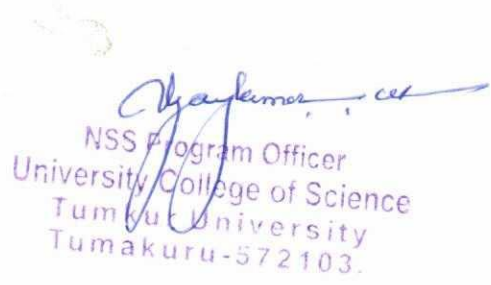 NSS Program Officer
University College of Science
Tumkur University
Tumakuru-572103.